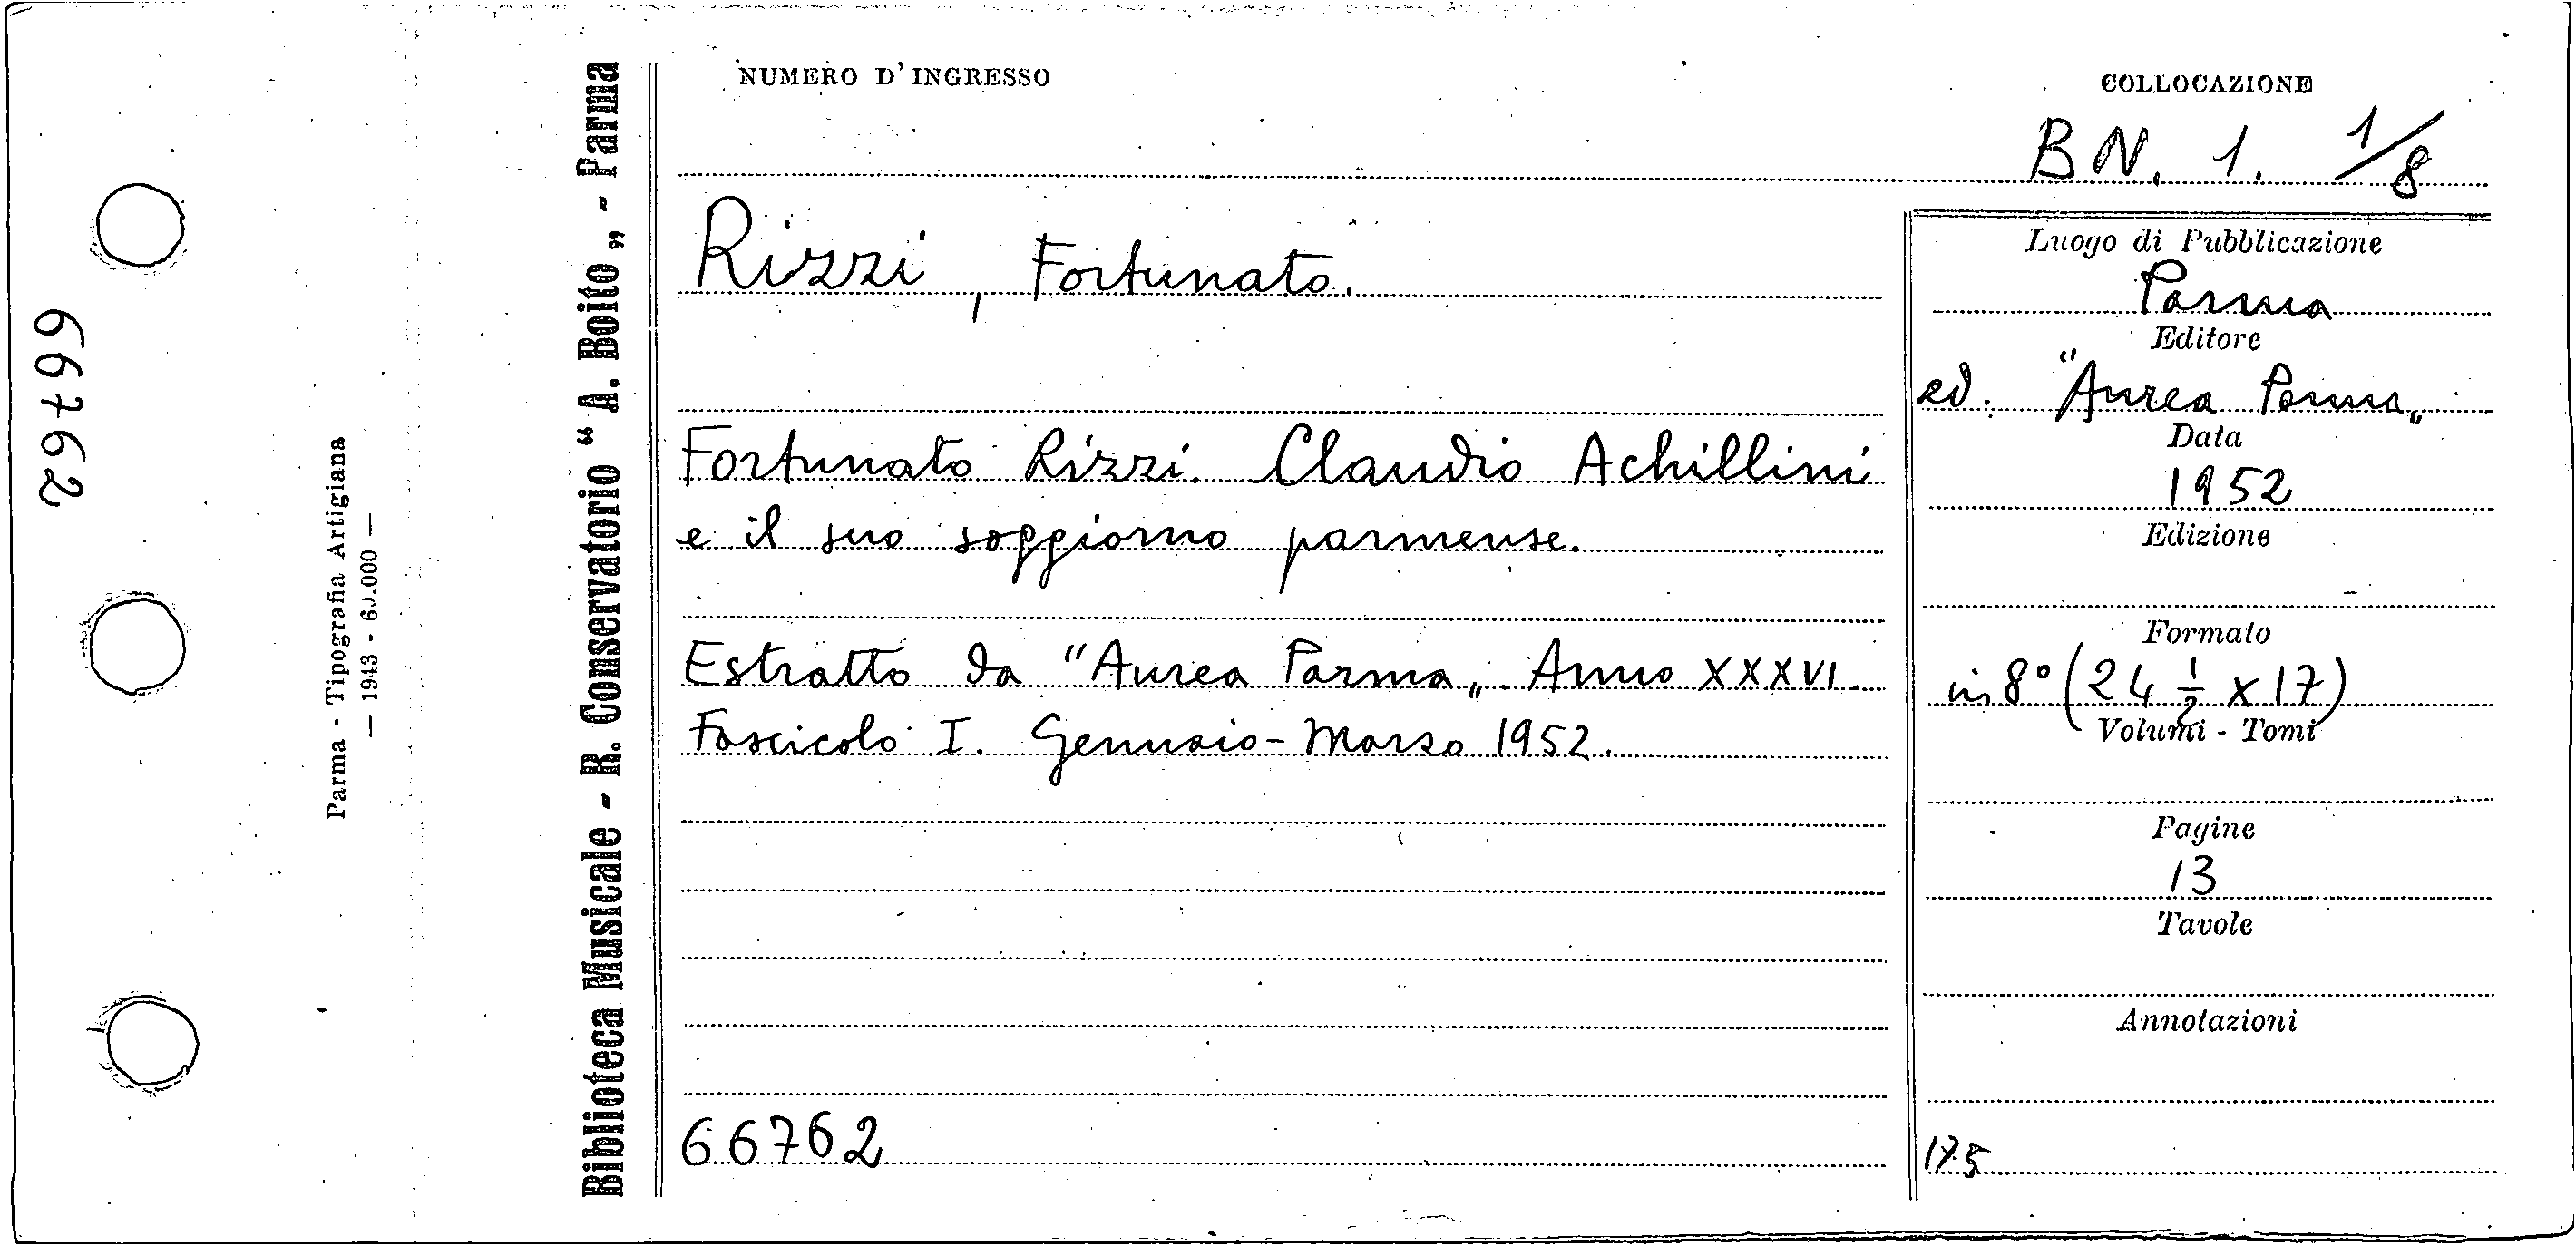 66762
Parma - Tipografia Artigiana
— 1943 - 60.000 —
Biblioteca Musicale - R. Conservatorio “ A. Boito „ - Parma
NUMERO D' INGRESSO
COLLOCAZIONE
BN. 1. 1/8
Rizzi, Fortunato.
Fortunato Rizzi. Claudio Achillini
e il suo soggiorno parmense.
Estratto da "Aurea Parma„. Anno XXXVI.
Fascicolo I. Gennaio-Marzo 1952.
66762
Luogo di Pubblicazione
Parma
Editore
ed. "Aurea Parma„
Data
1952
Edizione
Formato
in 8° (24 1/2 x 17)
Volumi - Tomi
Pagine
13
Tavole
Annotazioni
175